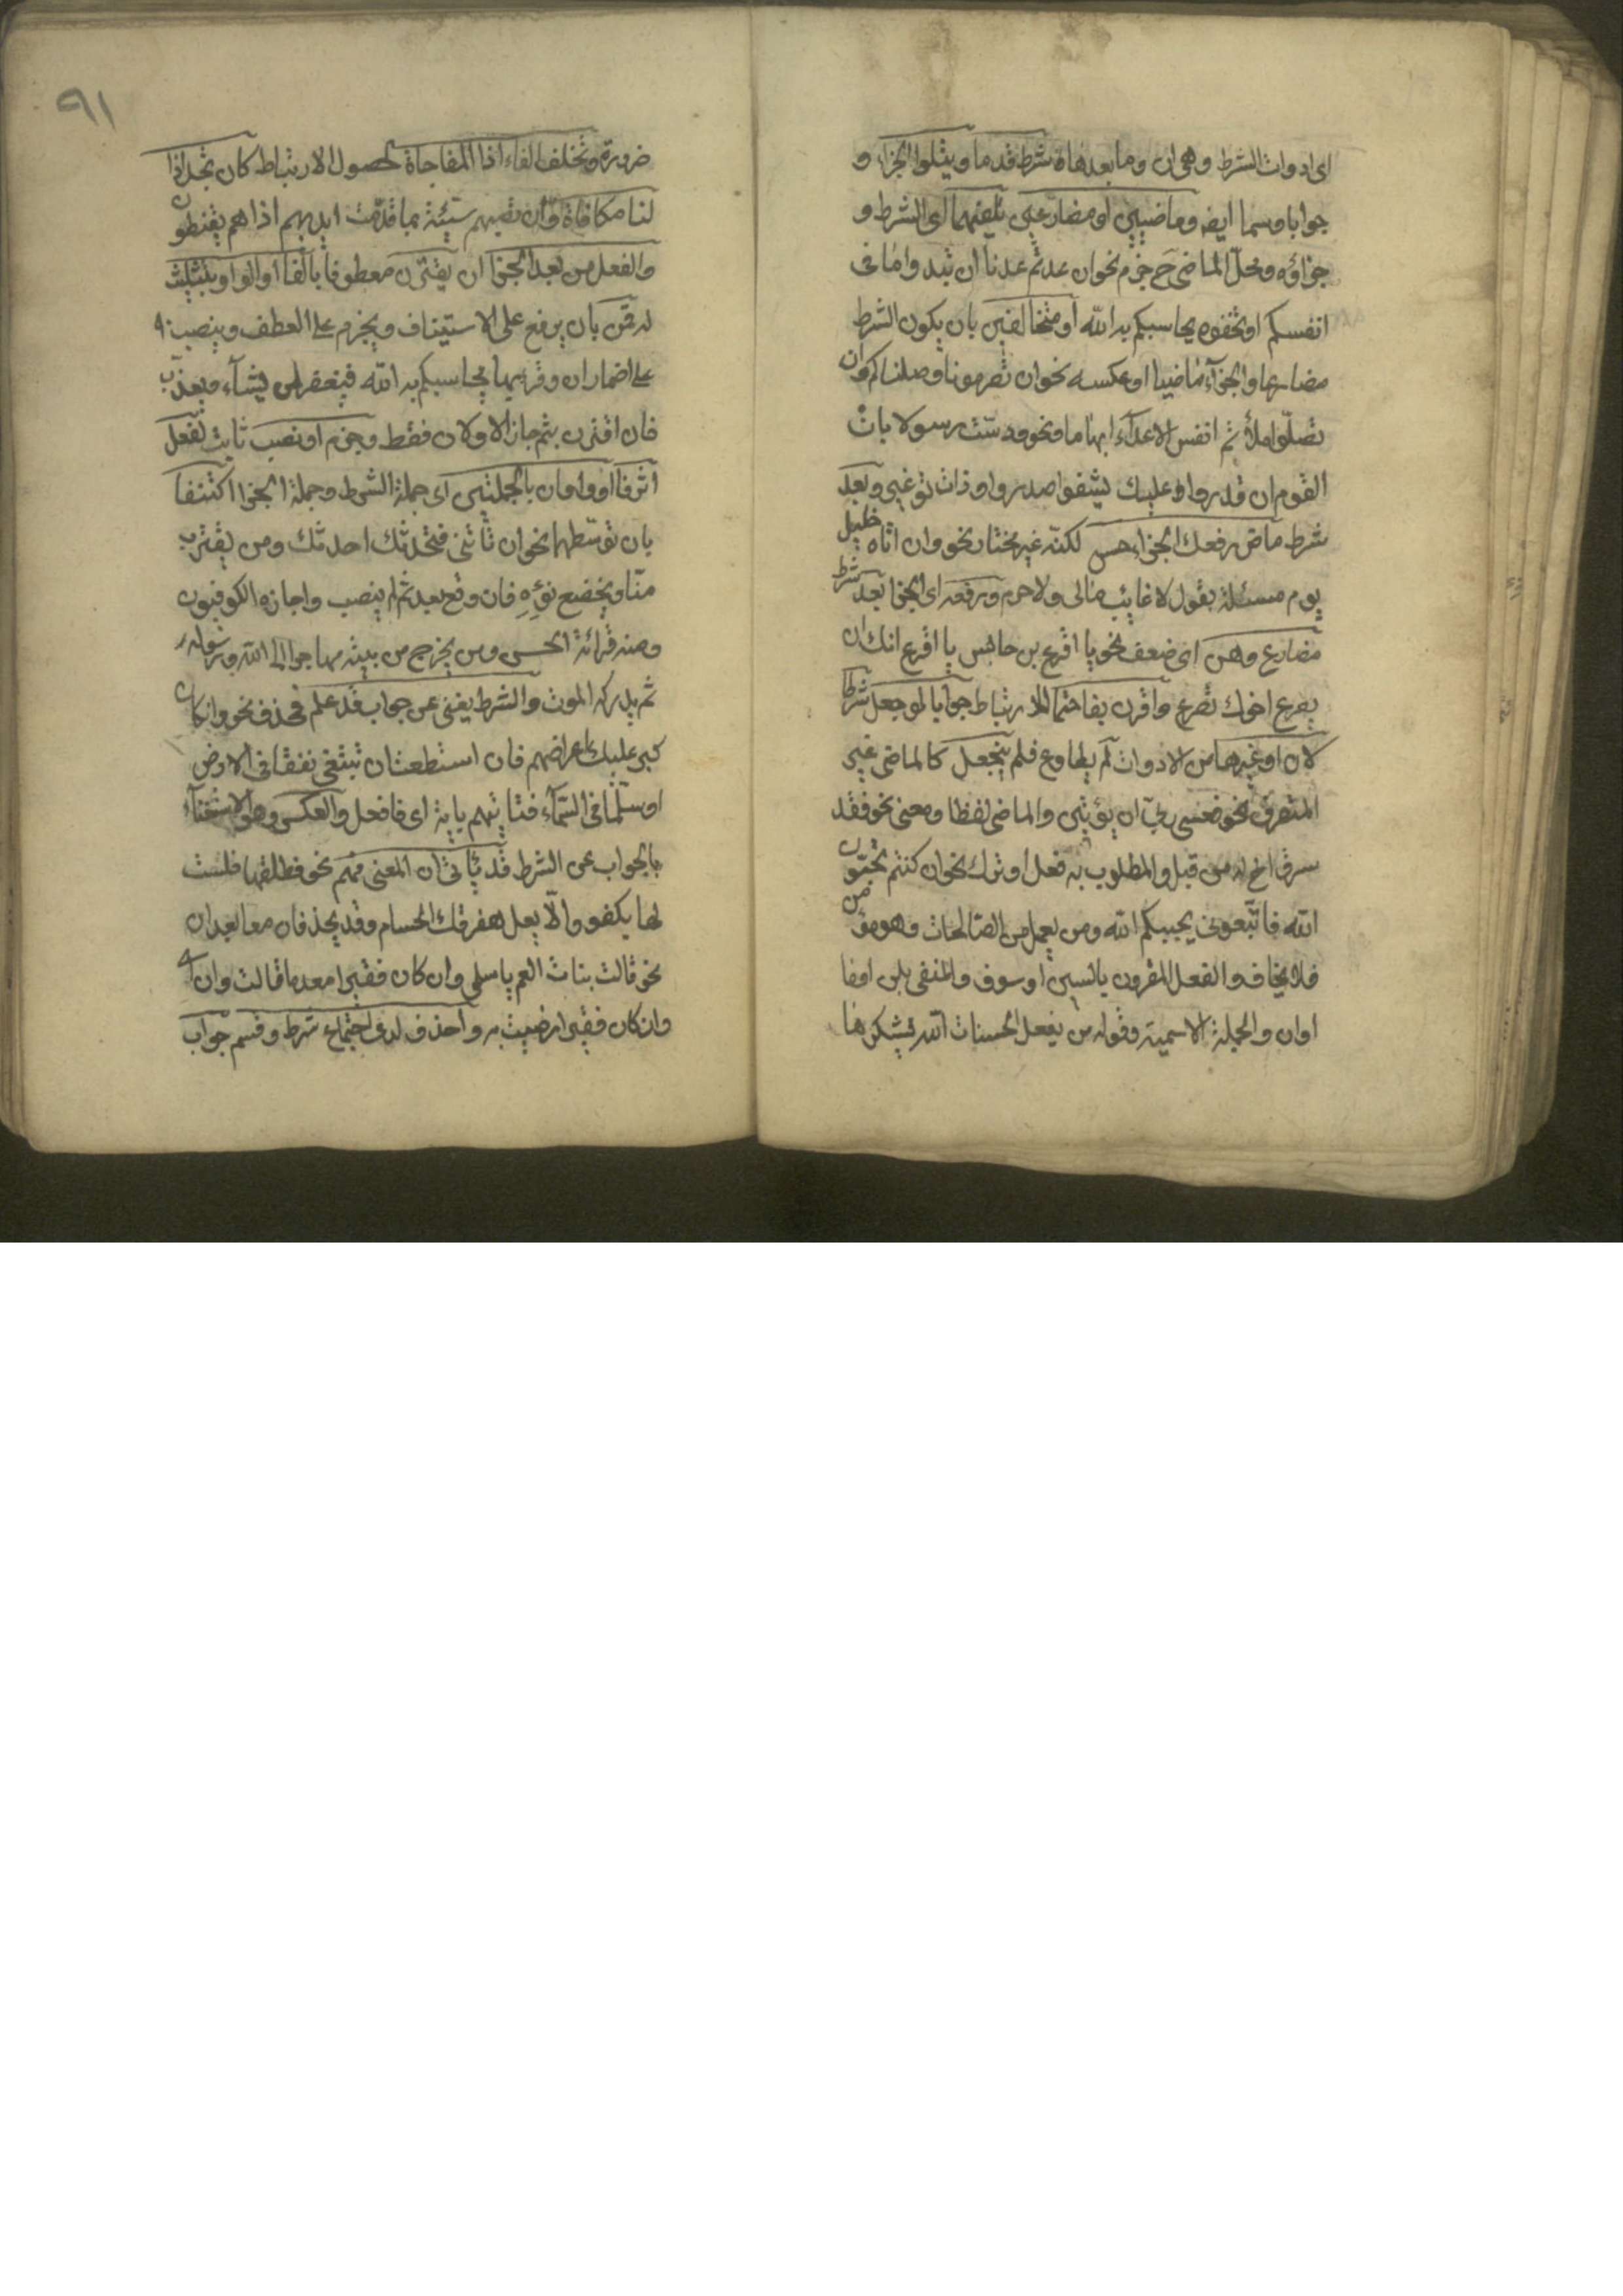 اى ادوات الشرط وهى ان وما بعدها شرط قدما ويتلوا الجزا و
جوابا وسما ايضه وماضيين او مضارعين تلفيهما اى الشرط و
جزاؤه ومحلّ الماضى ح جزم نحو ان عدتم عدنا ان تبدوا ما فى
انفسكم او تخفوه يحاسبكم به الله او متخالفين بان يكون الشرط
مضارعا والجزآء ماضيا او عكسه نحو ان تصرمونا وصلناكم وان
تصلوا ملأتم انفس الاعدآء ارهابا ونحو دسّت رسولا بان
القوم ان قدروا عليك يشفوا صدورا ذات توغير وبعد
شرط ماض رفعك الجزاء حسن لكنه غير مختار نحو وان اتاه خليل
يوم مسئلة يقول لا غائب مالى ولا حرم ورفعه اى الجزا بعد شرط
مضارع وهن اى ضعف نحو يا اقرع بن حابس يا اقرع انك ان
يصرع اخوك تصرع واقرن بفا حتما للارتباط جوابا لو جعل شرطا
لان او غيرها من الادوات لم يطاوع فلم ينجعل كالماضى غير
المتصرف نحو فعسى ربى ان يؤتين والماضى لفظا ومعنى نحو فقد
سرق اخ له من قبل والمطلوب به فعل او ترك نحو ان كنتم تحبّون
الله فاتّبعونى يحببكم الله ومن يعمل من الصالحات وهو مؤمن
فلا يخاف والفعل المقرون بالسين او سوف والمنفى بلن او ما
او ان والجملة الاسمية وقوله من يفعل الحسنات الله يشكرها
ضرورة وتخلف الفاء اذا المفاجاة لحصول الارتباط كان تجد اذا
لنا مكافاة وان تصبهم سيّئة بما قدّمت ايديهم اذا هم يقنطون
والفعل من بعد الجزا ان يقترن معطوفا بالفا او الواو بتثليث
له قمن بان يرفع على الاستيناف ويجزم على العطف وينصب
على اضمار ان وقرئ بها يحاسبكم به الله فيغفر لمن يشآء ويعذّب
فان اقترن بثم جاز الاولان فقط وجزم او نصب ثابت لفعل
اثر فا او واو ان بالجملتين اى جملة الشرط وجملة الجزا اكتنفا
بان توسّطهما نحو ان تأتنى فتحدثنى احدثك ومن يقترب
منّا ويخضع نؤوه فان وقع بعد ثم لم ينصب واجازه الكوفيون
ومنه قرائة الحسن ومن يخرج من بيته مهاجرا الى الله ورسوله
ثم يدركه الموت والشرط يغنى عن جواب قد علم فحذف نحو وان كان
كبر عليك اعراضهم فان استطعت ان تبتغى نفقا فى الارض
او سلّما فى السّمآء فتاتيهم باية اى فافعل والعكس وهو الاستغنآء
بالجواب عن الشرط قد يأتى ان المعنى فهم نحو فطلقها فلست
لها بكفو والّا يعل مفرقك الحسام وقد يحذفان معا بعد ان
نحو قالت بنات العم يا سلمى وان كان فقيرا معدما قالت وان
وان كان فقيرا رضيت به واحذف لدى اجتماع شرط وقسم جواب
٩١